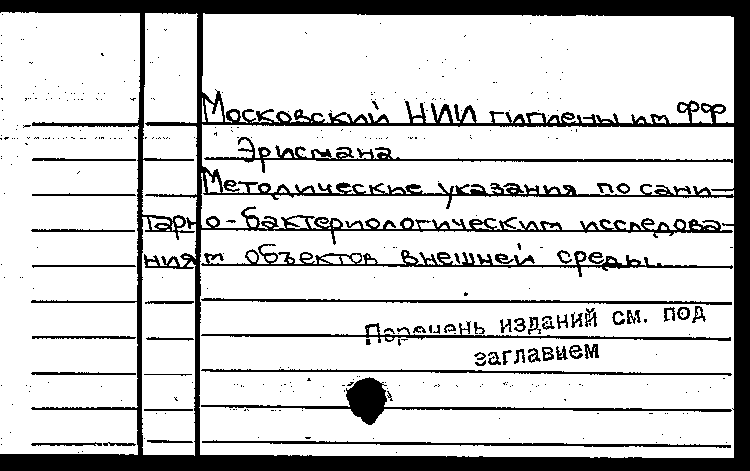 Московский НИИ гигиены им ФФ
Эрисмана.
Методические указания по сани-
тарно-бактериологическим исследова-
ниям объектов внешней среды.
Перечень изданий см. под
заглавием